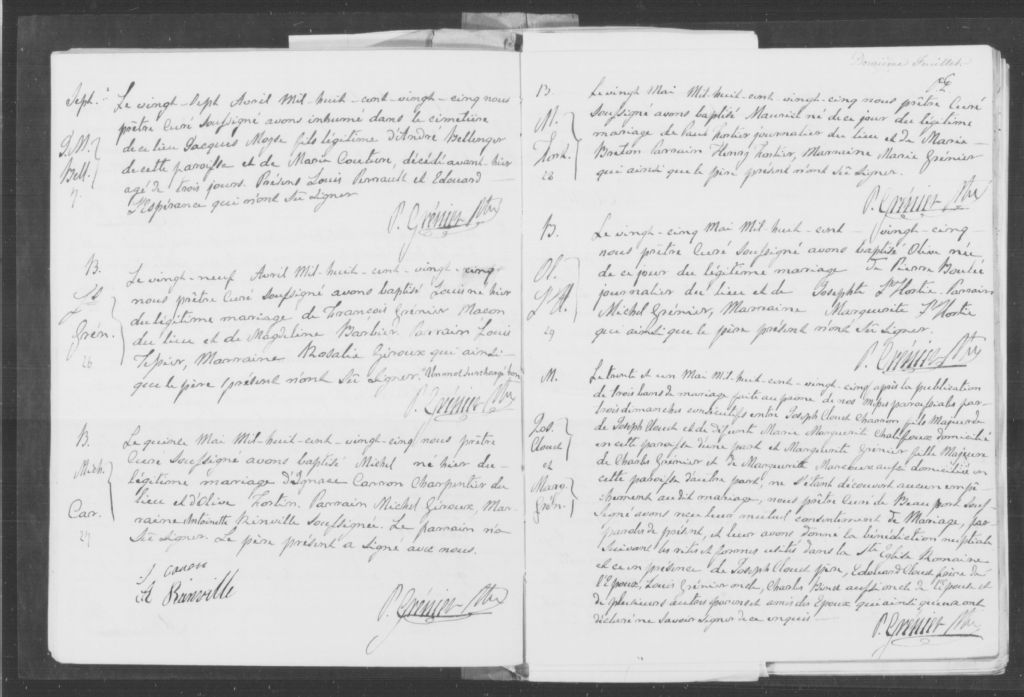 Sept.
J. M.
Bell.
7.
Le vingt-sept Avril Mil-huit-cent-vingt-cinq nous
prêtre Curé soussigné avons inhumé dans le cimetière
de ce lieu Jacques Moyse fils légitime d'André Bellenger
de cette paroisse et de Marie Couture, décédé avant-hier
agé de trois jours. Présens Louis Perrault et Edouard
L'espérance qui n'ont sû signer
P. Grénier Ptre
B.
Ls
Grén.
26
Le vingt-neuf Avril Mil-huit-cent-vingt-cinq
nous prêtre Curé soussigné avons baptisé Louis né hier
du légitime mariage de François Grénier Maçon
du lieu et de Magdeleine Barbier. Parrain Louis
Tessier, Marraine Rosalie Giroux qui ainsi
que le père présent n'ont sû signer. Un mot surchargé bon
P. Grénier Ptre
B.
Mich.
Car.
27
Le quinze Mai Mil-huit-cent-vingt-cinq nous prêtre
Curé soussigné avons baptisé Michel né hier du
légitime mariage d'Ignace Carron Charpentier du
lieu et d'Olive Tortin. Parrain Michel Giroux, Mar-
raine Antoinette Rinville soussignée. Le parrain n'a
sû signer. Le père présent a signé avec nous.
J caron
A Rainville
P. Grénier Ptre
Douzième Feuillet
B.
M.
Hort.
28
Le vingt Mai Mil-huit-cent-vingt-cinq nous prêtre Curé
soussigné avons baptisé Maurice né de ce jour du légitime
mariage de Hortier journalier du lieu et de Marie
Breton Parrain Henry Hortier, Marraine Marie Grénier
qui ainsi que le père présent n'ont sû signer.
P. Grénier Ptre
B.
Ol.
29
Le vingt-cinq Mai Mil-huit-cent-vingt-cinq
nous prêtre Curé soussigné avons baptisé Olive née
de ce jour du légitime mariage de Pierre Boutié
journalier du lieu et de Josephte L'Hortie. Parrain
Michel Grénier, Marraine Marguerite L'Hortie
qui ainsi que le père présent n'ont sû signer.
P. Grénier Ptre
M.
Jos.
Clouet
et
Marg.
Grén.
Le trente et un Mai Mil-huit-cent-vingt-cinq après la publication
de trois bans de mariage faite au prône de nos Messes paroissiales par
trois dimanches consécutifs entre Joseph Clouet Charron fils Majeur
de Joseph Clouet et de défunte Marie Marguerite Chalifoux domicilié
en cette paroisse d'une part et Marguerite Grénier fille Majeure
de Charles Grénier et de Marguerite Marcoux aussi domiciliée en
cette paroisse d'autre part; ne s'étant découvert aucun empê-
chement au dit mariage, nous prêtre Curé de Beauport sous-
signé avons reçu leur mutuel consentement de Mariage, par
paroles de présent, et leur avons donné la bénédiction nuptiale
suivant les rites et formes usités dans la Ste Eglise Romaine
et ce en présence de Joseph Clouet père, Edouard Clouet frère de
l'Epoux, Louis Grénier oncle, Charles Binet aussi oncle de l'Epouse et
de plusieurs autres parens et amis des Epoux qui ainsi qu'eux ont
déclaré ne savoir signer de ce enquis
P. Grénier Ptre